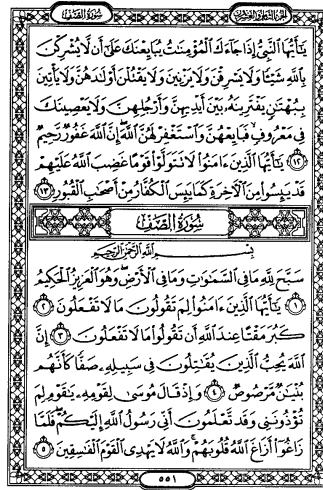 سُورَةُ الصَّفِّ الجُزْءُ الثَّامِنُ وَالْعِشْرُونَ
يَٰٓأَيُّهَا ٱلنَّبِيُّ إِذَا جَآءَكَ ٱلْمُؤْمِنَٰتُ يُبَايِعْنَكَ عَلَىٰٓ أَن لَّا يُشْرِكْنَ
بِٱللَّهِ شَيْـًٔا وَلَا يَسْرِقْنَ وَلَا يَزْنِينَ وَلَا يَقْتُلْنَ أَوْلَٰدَهُنَّ وَلَا يَأْتِينَ
بِبُهْتَٰنٍ يَفْتَرِينَهُۥ بَيْنَ أَيْدِيهِنَّ وَأَرْجُلِهِنَّ وَلَا يَعْصِينَكَ
فِى مَعْرُوفٍ فَبَايِعْهُنَّ وَٱسْتَغْفِرْ لَهُنَّ ٱللَّهَ إِنَّ ٱللَّهَ غَفُورٌ رَّحِيمٌ
١٢ يَٰٓأَيُّهَا ٱلَّذِينَ ءَامَنُوا۟ لَا تَتَوَلَّوْا۟ قَوْمًا غَضِبَ ٱللَّهُ عَلَيْهِمْ
قَدْ يَئِسُوا۟ مِنَ ٱلْءَاخِرَةِ كَمَا يَئِسَ ٱلْكُفَّارُ مِنْ أَصْحَٰبِ ٱلْقُبُورِ ١٣
سُورَةُ الصَّفِّ
بِسْمِ ٱللَّهِ ٱلرَّحْمَٰنِ ٱلرَّحِيمِ
سَبَّحَ لِلَّهِ مَا فِى ٱلسَّمَٰوَٰتِ وَمَا فِى ٱلْأَرْضِ وَهُوَ ٱلْعَزِيزُ ٱلْحَكِيمُ
١ يَٰٓأَيُّهَا ٱلَّذِينَ ءَامَنُوا۟ لِمَ تَقُولُونَ مَا لَا تَفْعَلُونَ ٢
كَبُرَ مَقْتًا عِندَ ٱللَّهِ أَن تَقُولُوا۟ مَا لَا تَفْعَلُونَ ٣ إِنَّ
ٱللَّهَ يُحِبُّ ٱلَّذِينَ يُقَٰتِلُونَ فِى سَبِيلِهِۦ صَفًّا كَأَنَّهُم
بُنْيَٰنٌ مَّرْصُوصٌ ٤ وَإِذْ قَالَ مُوسَىٰ لِقَوْمِهِۦ يَٰقَوْمِ لِمَ
تُؤْذُونَنِى وَقَد تَّعْلَمُونَ أَنِّى رَسُولُ ٱللَّهِ إِلَيْكُمْ فَلَمَّا
زَاغُوٓا۟ أَزَاغَ ٱللَّهُ قُلُوبَهُمْ وَٱللَّهُ لَا يَهْدِى ٱلْقَوْمَ ٱلْفَٰسِقِينَ ٥
٥٥١